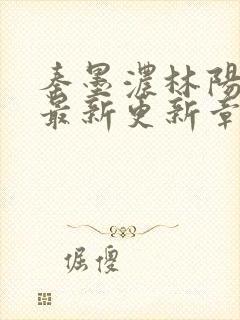 秦墨濃林陽
最新更新章
倔傻